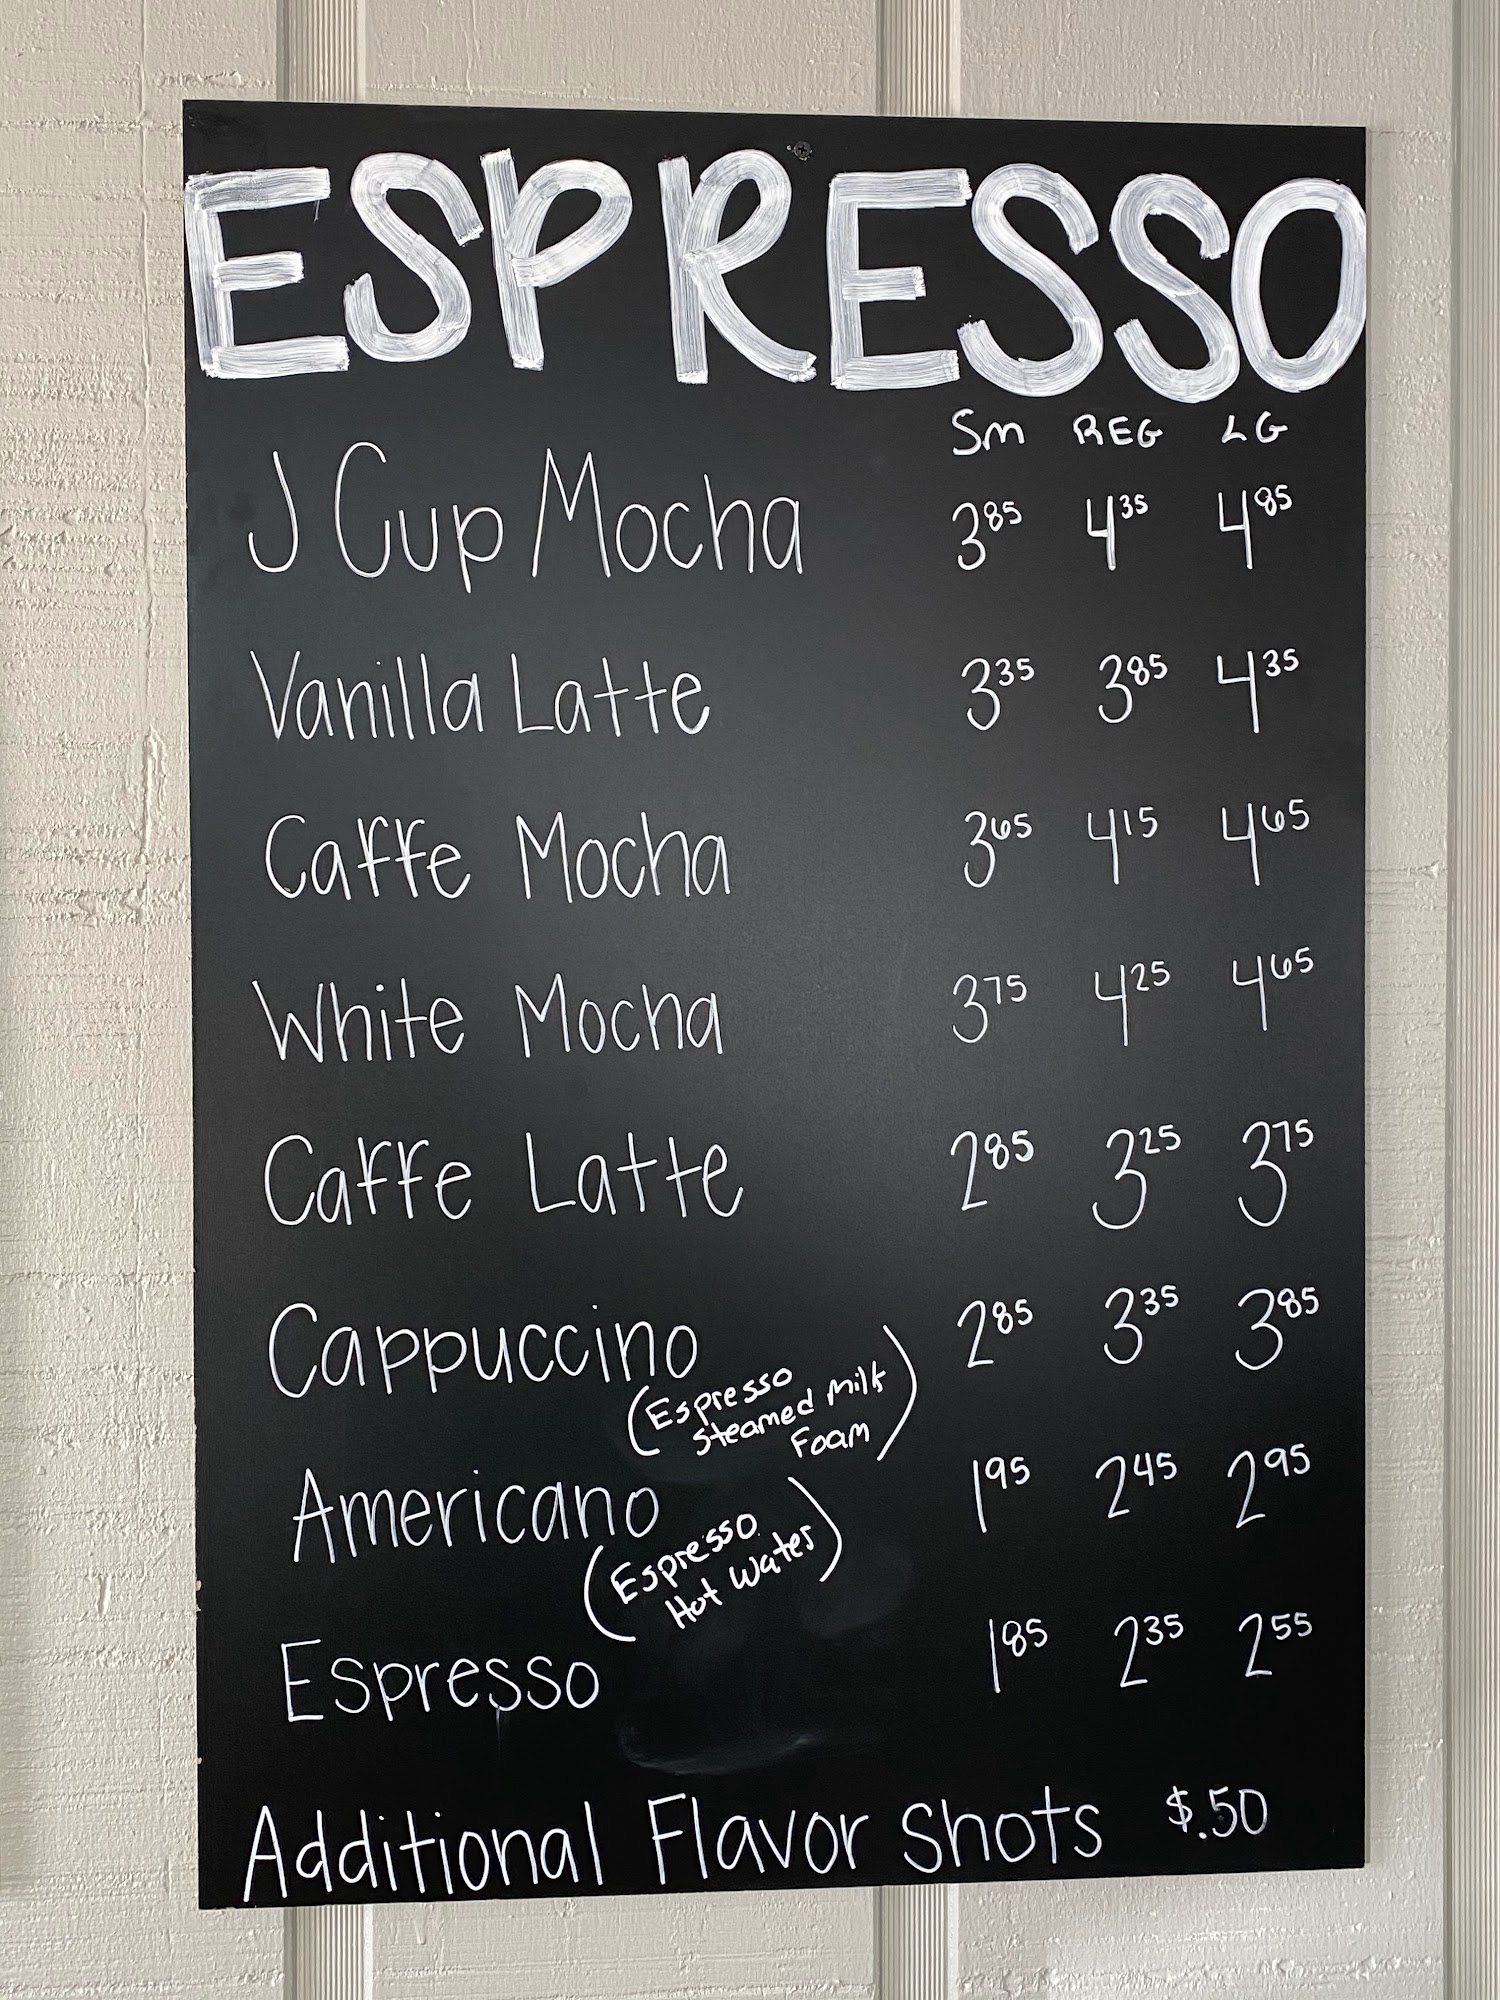 ESPRESSO
Sm REG LG
J Cup Mocha 3 85 4 35 4 85
Vanilla Latte 3 35 3 85 4 35
Caffe Mocha 3 65 4 15 4 65
White Mocha 3 75 4 25 4 65
Caffe Latte 2 85 3 25 3 75
Cappuccino 2 85 3 35 3 85
(Espresso
Steamed Milk
Foam)
Americano 1 95 2 45 2 95
(Espresso
Hot Water)
Espresso 1 85 2 35 2 55
Additional Flavor Shots $.50